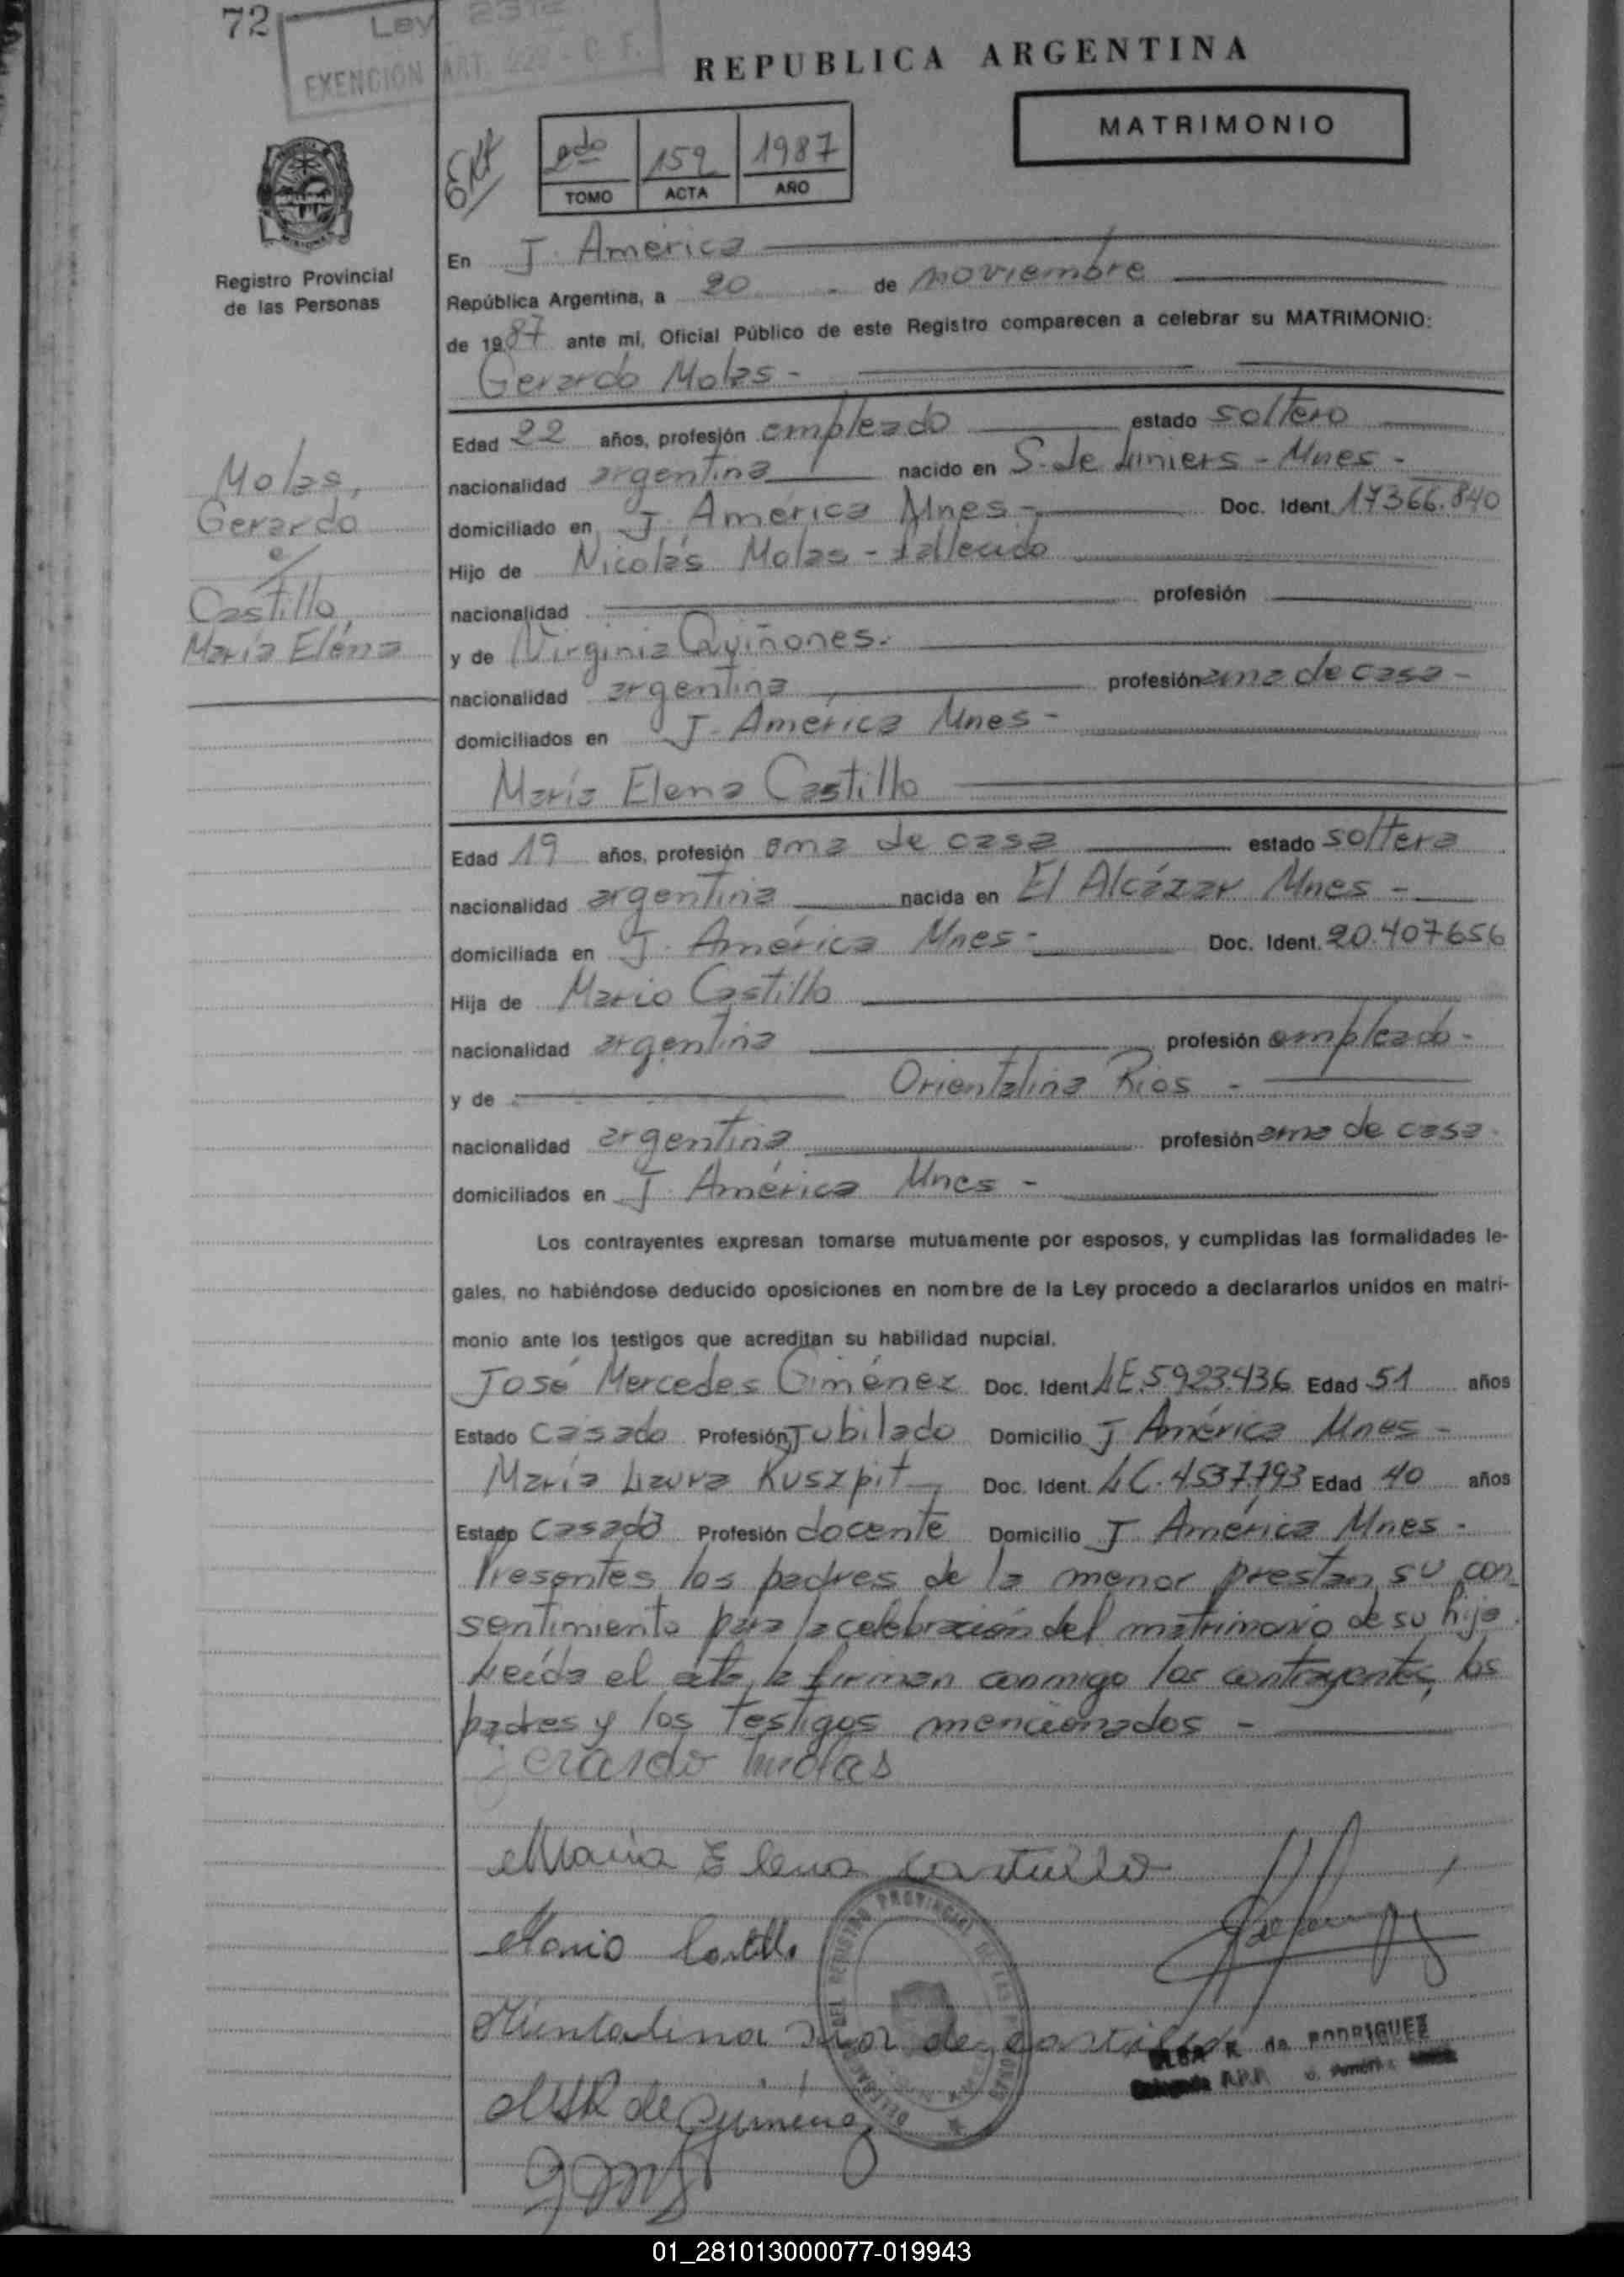 72
Ley 2312
EXENCION ART. 229 - C. F.
REPUBLICA ARGENTINA
MATRIMONIO
2do 159 1987
TOMO ACTA AÑO
Registro Provincial
de las Personas
En J. América
República Argentina, a 20 de noviembre
de 1987 ante mi, Oficial Público de este Registro comparecen a celebrar su MATRIMONIO:
Gerardo Molas -
Edad 22 años, profesión empleado estado soltero
nacionalidad argentina nacido en S. de Liniers - Mnes -
domiciliado en J. América Mnes - Doc. Ident. 17366.840
Hijo de Nicolás Molas - fallecido
nacionalidad profesión
y de Virginia Quiñones.
nacionalidad argentina profesión ama de casa -
domiciliados en J. América Mnes -
Molas,
Gerardo
c/
Castillo,
María Eléna
María Elena Castillo
Edad 19 años, profesión ama de casa estado soltera
nacionalidad argentina nacida en El Alcázar Mnes -
domiciliada en J. América Mnes - Doc. Ident. 20.407656
Hija de Mario Castillo
nacionalidad argentina profesión empleado -
y de Orientalina Rios -
nacionalidad argentina profesión ama de casa -
domiciliados en J. América Mnes -
Los contrayentes expresan tomarse mutuamente por esposos, y cumplidas las formalidades le-
gales, no habiéndose deducido oposiciones en nombre de la Ley procedo a declararlos unidos en matri-
monio ante los testigos que acreditan su habilidad nupcial.
José Mercedes Giménez Doc. Ident. LE.5923.436 Edad 51 años
Estado Casado Profesión Jubilado Domicilio J América Mnes -
María Laura Kuszpit Doc. Ident. LC.4537.793 Edad 40 años
Estado Casada Profesión docente Domicilio J América Mnes -
Presentes los padres de la menor prestan su con
sentimiento para la celebración del matrimonio de su hija.
Leída el acta, la firman conmigo los contrayentes, los
padres y los testigos mencionados -
Gerardo Molas
Maria Elena Castillo
Mario Castillo
Orientalina Rios de Castillo
de RODRIGUEZ
de Gimenez
01_281013000077-019943